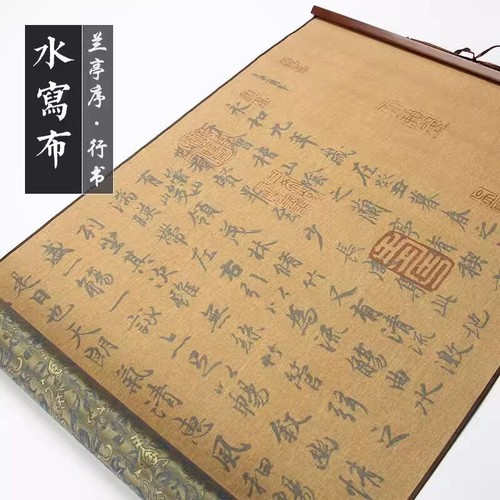 水寫布
兰亭序·行书
永和九年歲在癸丑暮春之
會稽山陰之蘭亭
賢畢至少長咸集此地
有峻領茂林脩竹又有清流激
湍暎帶左右引以為流觴曲水
列坐其次雖無絲竹管弦之
盛一觴一詠足以暢敘幽情
是日也天朗氣清惠風和暢